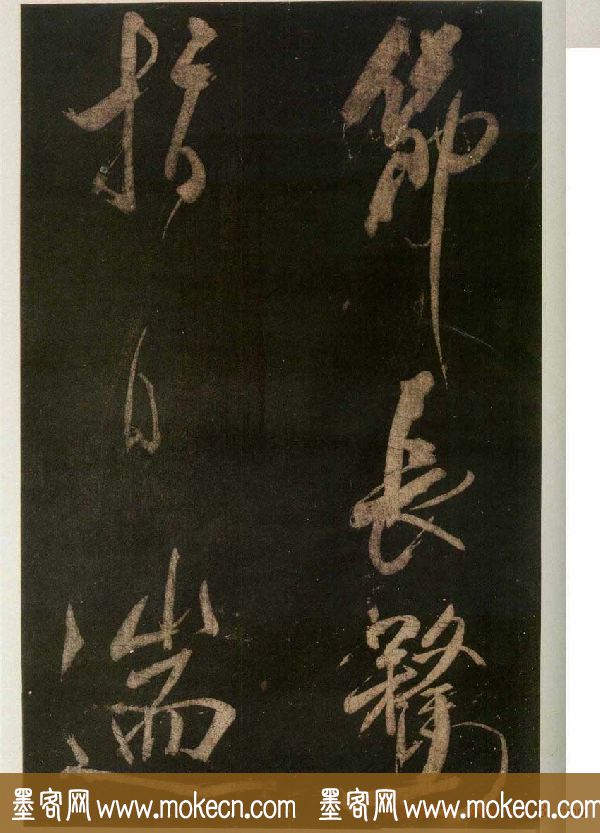 長騖
指日遄
墨客网www.mokecn.com 墨客网www.mokecn.com